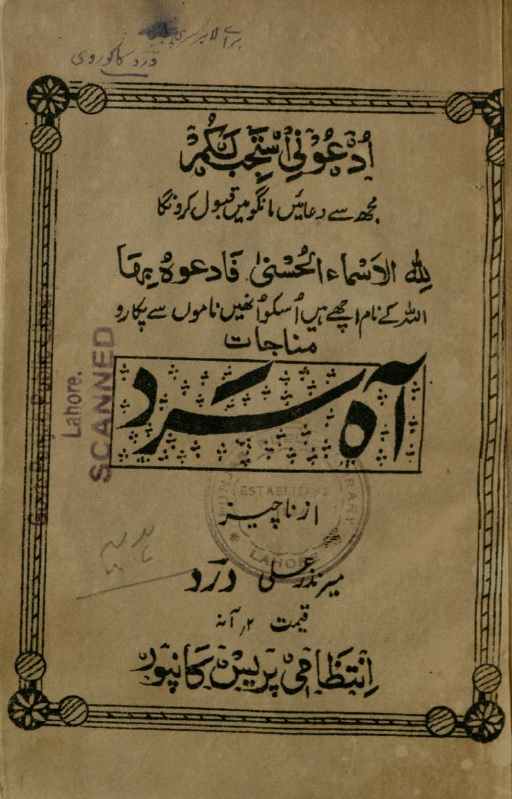 برائے لائبریری
درد کاکوروی
اُدْعُوْنِیْ اَسْتَجِبْ لَکُمْ
مجھ سے دعائیں مانگو میں قبول کرونگا
لِلّٰہِ الاَسْمَاءُ الحُسْنیٰ فَادعوہُ بِھَا
اللہ کے نام اچھے ہیں اُسکو اُنھیں ناموں سے پکارو
مناجات
آہ سَرد
از ناچیز
میر نذر علی درد
قیمت ۲؍ آنہ
اِنتظامی پریس کانپور
ہدیہ
Lahore.
SCANNED
ESTABLISHED
LIBRARY
LAHORE